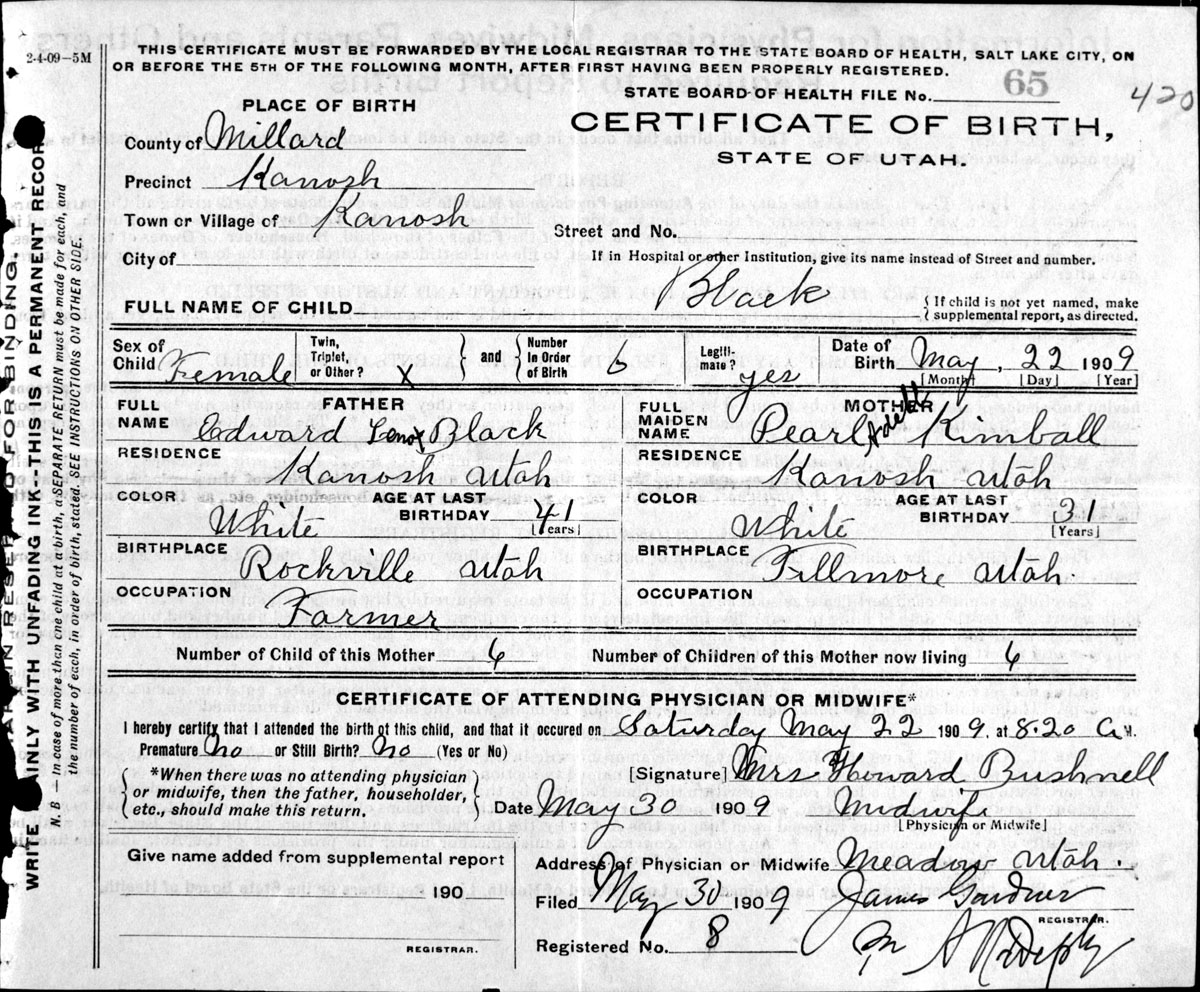 2-4-09-5M
THIS CERTIFICATE MUST BE FORWARDED BY THE LOCAL REGISTRAR TO THE STATE BOARD OF HEALTH, SALT LAKE CITY, ON
OR BEFORE THE 5TH OF THE FOLLOWING MONTH, AFTER FIRST HAVING BEEN PROPERLY REGISTERED.
STATE BOARD OF HEALTH FILE No. 65 420
PLACE OF BIRTH
CERTIFICATE OF BIRTH,
STATE OF UTAH.
County of Millard
Precinct Kanosh
Town or Village of Kanosh
Street and No.
City of
If in Hospital or other Institution, give its name instead of Street and number.
FULL NAME OF CHILD Black { If child is not yet named, make
supplemental report, as directed.
Sex of Child Female Twin, Triplet, or Other? X } and { Number In Order of Birth 6 Legitimate? yes Date of Birth May, 22 1909
[Month] [Day] [Year]
FATHER
FULL NAME Edward Black
RESIDENCE Kanosh Utah
COLOR White AGE AT LAST BIRTHDAY 41 [Years]
BIRTHPLACE Rockville Utah
OCCUPATION Farmer
MOTHER
FULL MAIDEN NAME Pearl Adell Kimball
RESIDENCE Kanosh Utah
COLOR White AGE AT LAST BIRTHDAY 31 [Years]
BIRTHPLACE Fillmore Utah.
OCCUPATION
Number of Child of this Mother 6 Number of Children of this Mother now living 6
CERTIFICATE OF ATTENDING PHYSICIAN OR MIDWIFE*
I hereby certify that I attended the birth of this child, and that it occured on Saturday May 22 1909, at 8.20 A M.
Premature No or Still Birth? No (Yes or No)
{ *When there was no attending physician
or midwife, then the father, householder,
etc., should make this return. }
[Signature] Mrs Howard Bushnell
Date May 30 1909 Midwife
[Physician or Midwife]
Give name added from supplemental report
190
REGISTRAR.
Address of Physician or Midwife Meadow Utah.
Filed May 30 1909 James Gardner
REGISTRAR.
Registered No. 8
MARGIN RESERVED FOR BINDING.
WRITE PLAINLY WITH UNFADING INK-THIS IS A PERMANENT RECORD.
N.B.-In case of more than one child at a birth, a SEPARATE RETURN must be made for each, and
the number of each, in order of birth, stated. SEE INSTRUCTIONS ON OTHER SIDE.